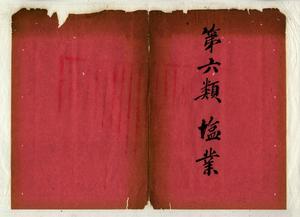 第六類 塩業